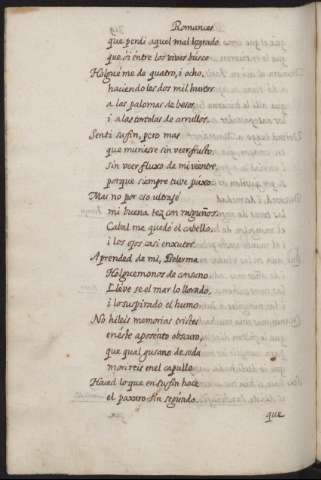 Romances
que perdi aquel mal logrado
que si éntre los vivos busco
Holgué me de quatro, i ocho,
haciendo les dos mil hurtos
a las palomas de besos
i a las tortolas de arrullos.
Senti su fin, pero mas
que muriese sin ver fruto,
sin ver fluxo de mi vientre
porque siempre tuve puxo
Mas no por eso ultrajo
mi buena tez con rasguños.
Cabal me quedó el cabello
i los ojos casi enxutos.
Aprended de mi, Belerma
Holguemonos de consuno
Lleve se el mar lo llorado,
i lo suspirado el humo.
No hileis memorias tristes
en este aposento obscuro,
que qual gusano de seda
morireis en el capullo
Haced lo que en su fin hace
el paxaro sin segundo.
que